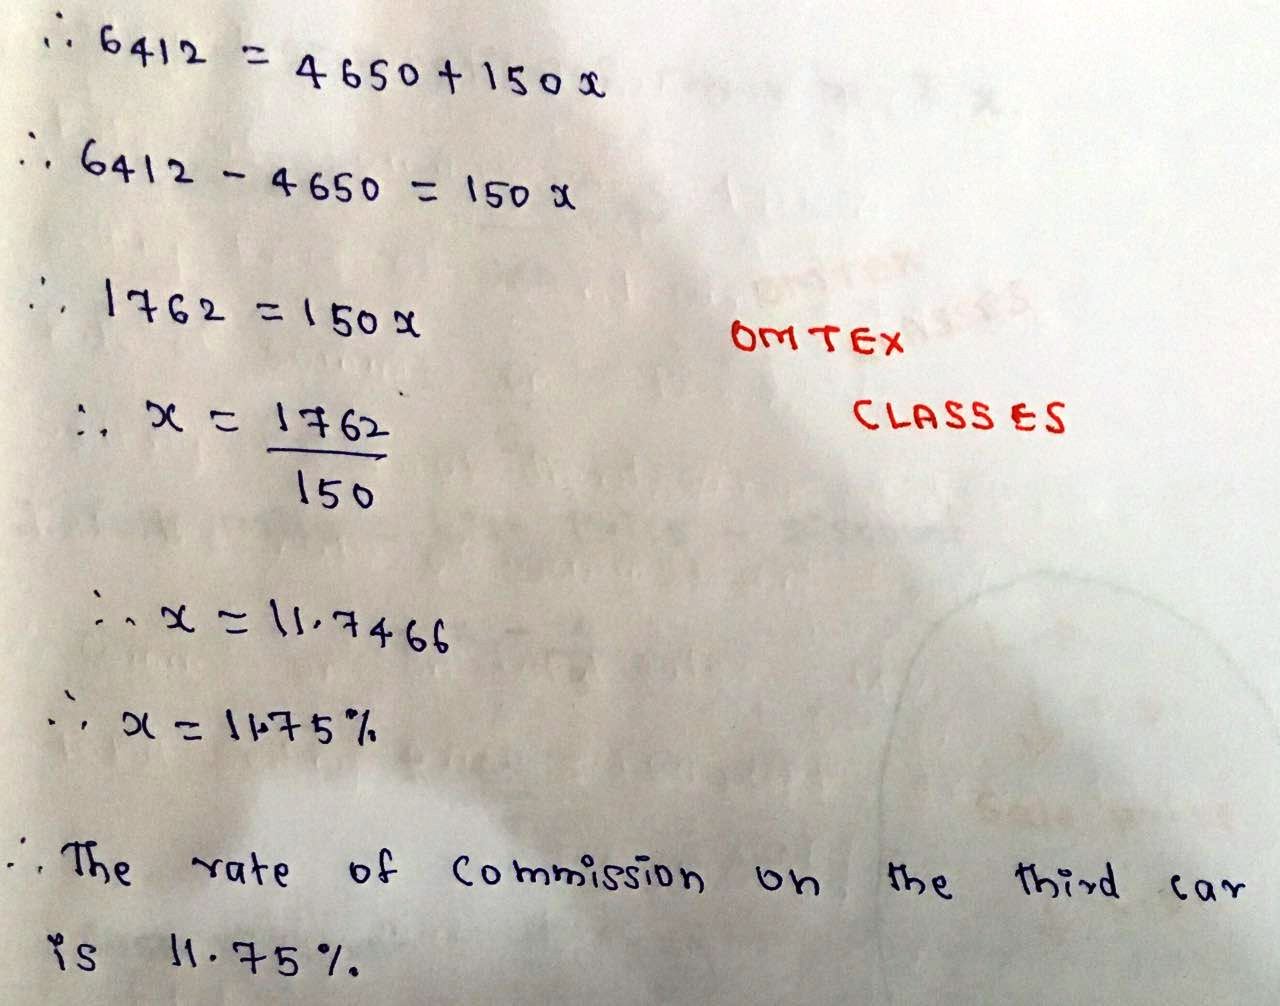 ∴ 6412 = 4650 + 150x
∴ 6412 - 4650 = 150x
∴ 1762 = 150x
OMTEX
CLASSES
∴ x = 1762
150
∴ x = 11.7466
∴ x = 11.75%
∴ The rate of commission on the third car
is 11.75%.